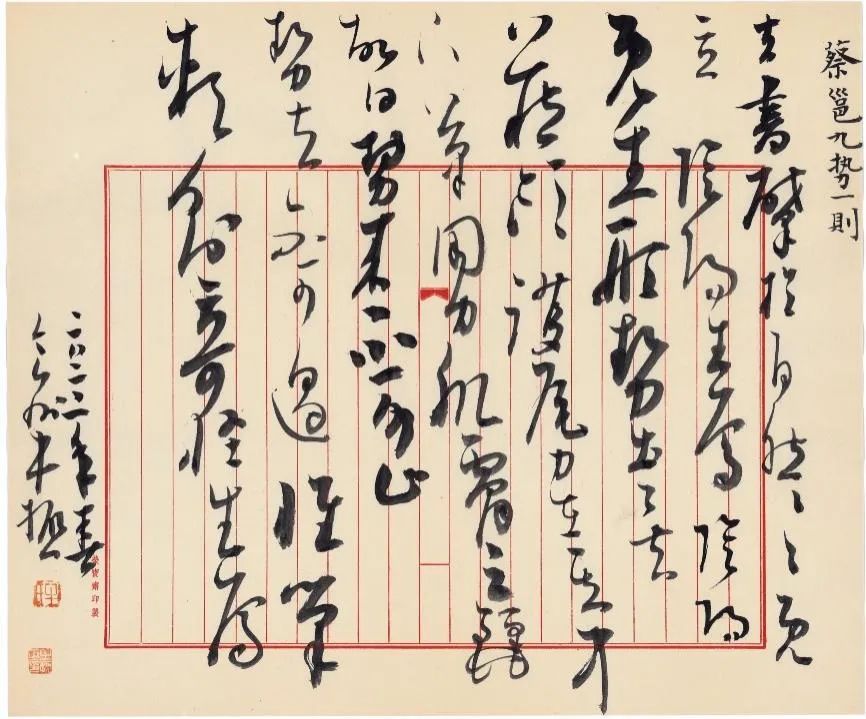 蔡邕九势一則
夫書肇於自然、、既
立 陰陽生焉 陰陽
既生形勢出矣
藏頭護尾力在字中
下筆用力肌膚之麗
故曰勢來不可止
勢去不可遏惟筆
軟則奇怪生焉
二〇二二年春
榮寶齋印製